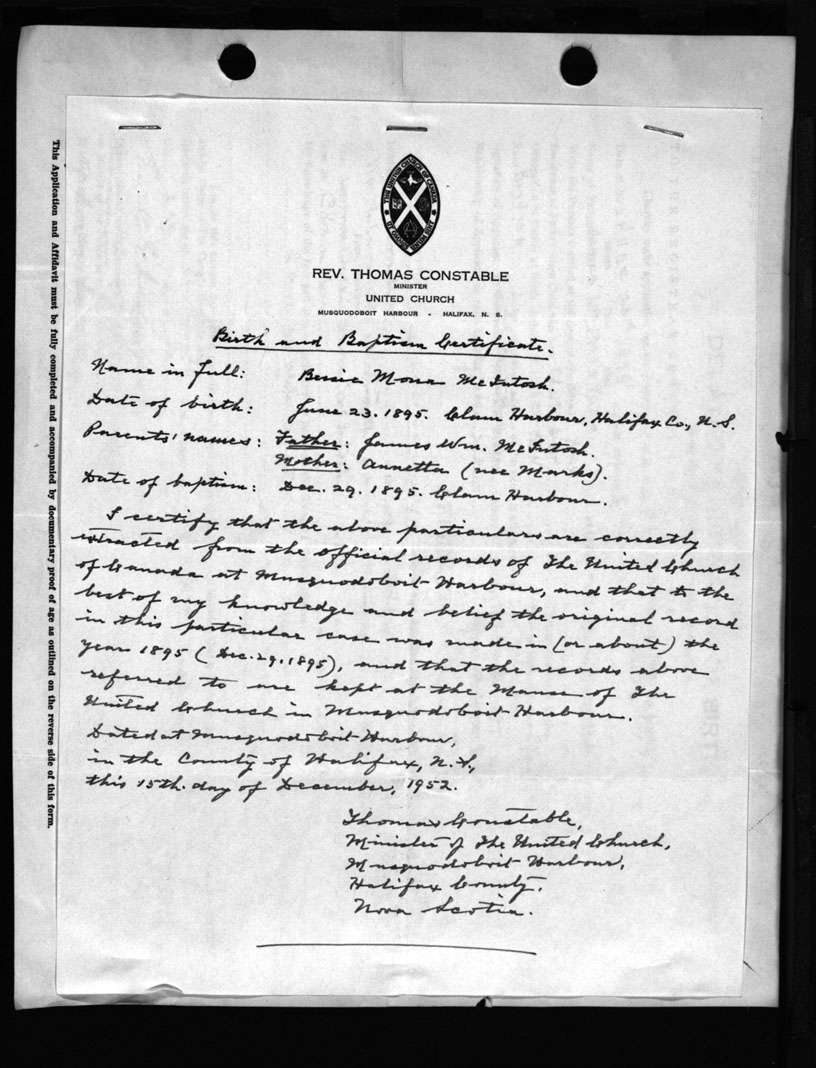 THE UNITED CHURCH OF CANADA
REV. THOMAS CONSTABLE
MINISTER
UNITED CHURCH
MUSQUODOBOIT HARBOUR - HALIFAX, N. S.
Birth and Baptism Certificate.
Name in full: Bessie Mona McIntosh.
Date of birth: June 23. 1895. Clam Harbour, Halifax Co., N. S.
Parents' names: Father: James Wm. McIntosh.
Mother: Annetta (nee Marks).
Date of baptism: Dec. 29. 1895. Clam Harbour.
I certify that the above particulars are correctly
extracted from the official records of The United Church
of Canada at Musquodoboit Harbour, and that to the
best of my knowledge and belief the original record
in this particular case was made in (or about) the
year 1895 (Dec. 29. 1895), and that the records above
referred to are kept at the Manse of The
United Church in Musquodoboit Harbour.
Dated at Musquodoboit Harbour,
in the County of Halifax, N.S.,
this 15th. day of December, 1952.
Thomas Constable,
Minister of The United Church,
Musquodoboit Harbour,
Halifax County,
Nova Scotia.
This Application and Affidavit must be fully completed and accompanied by documentary proof of age as outlined on the reverse side of this form.